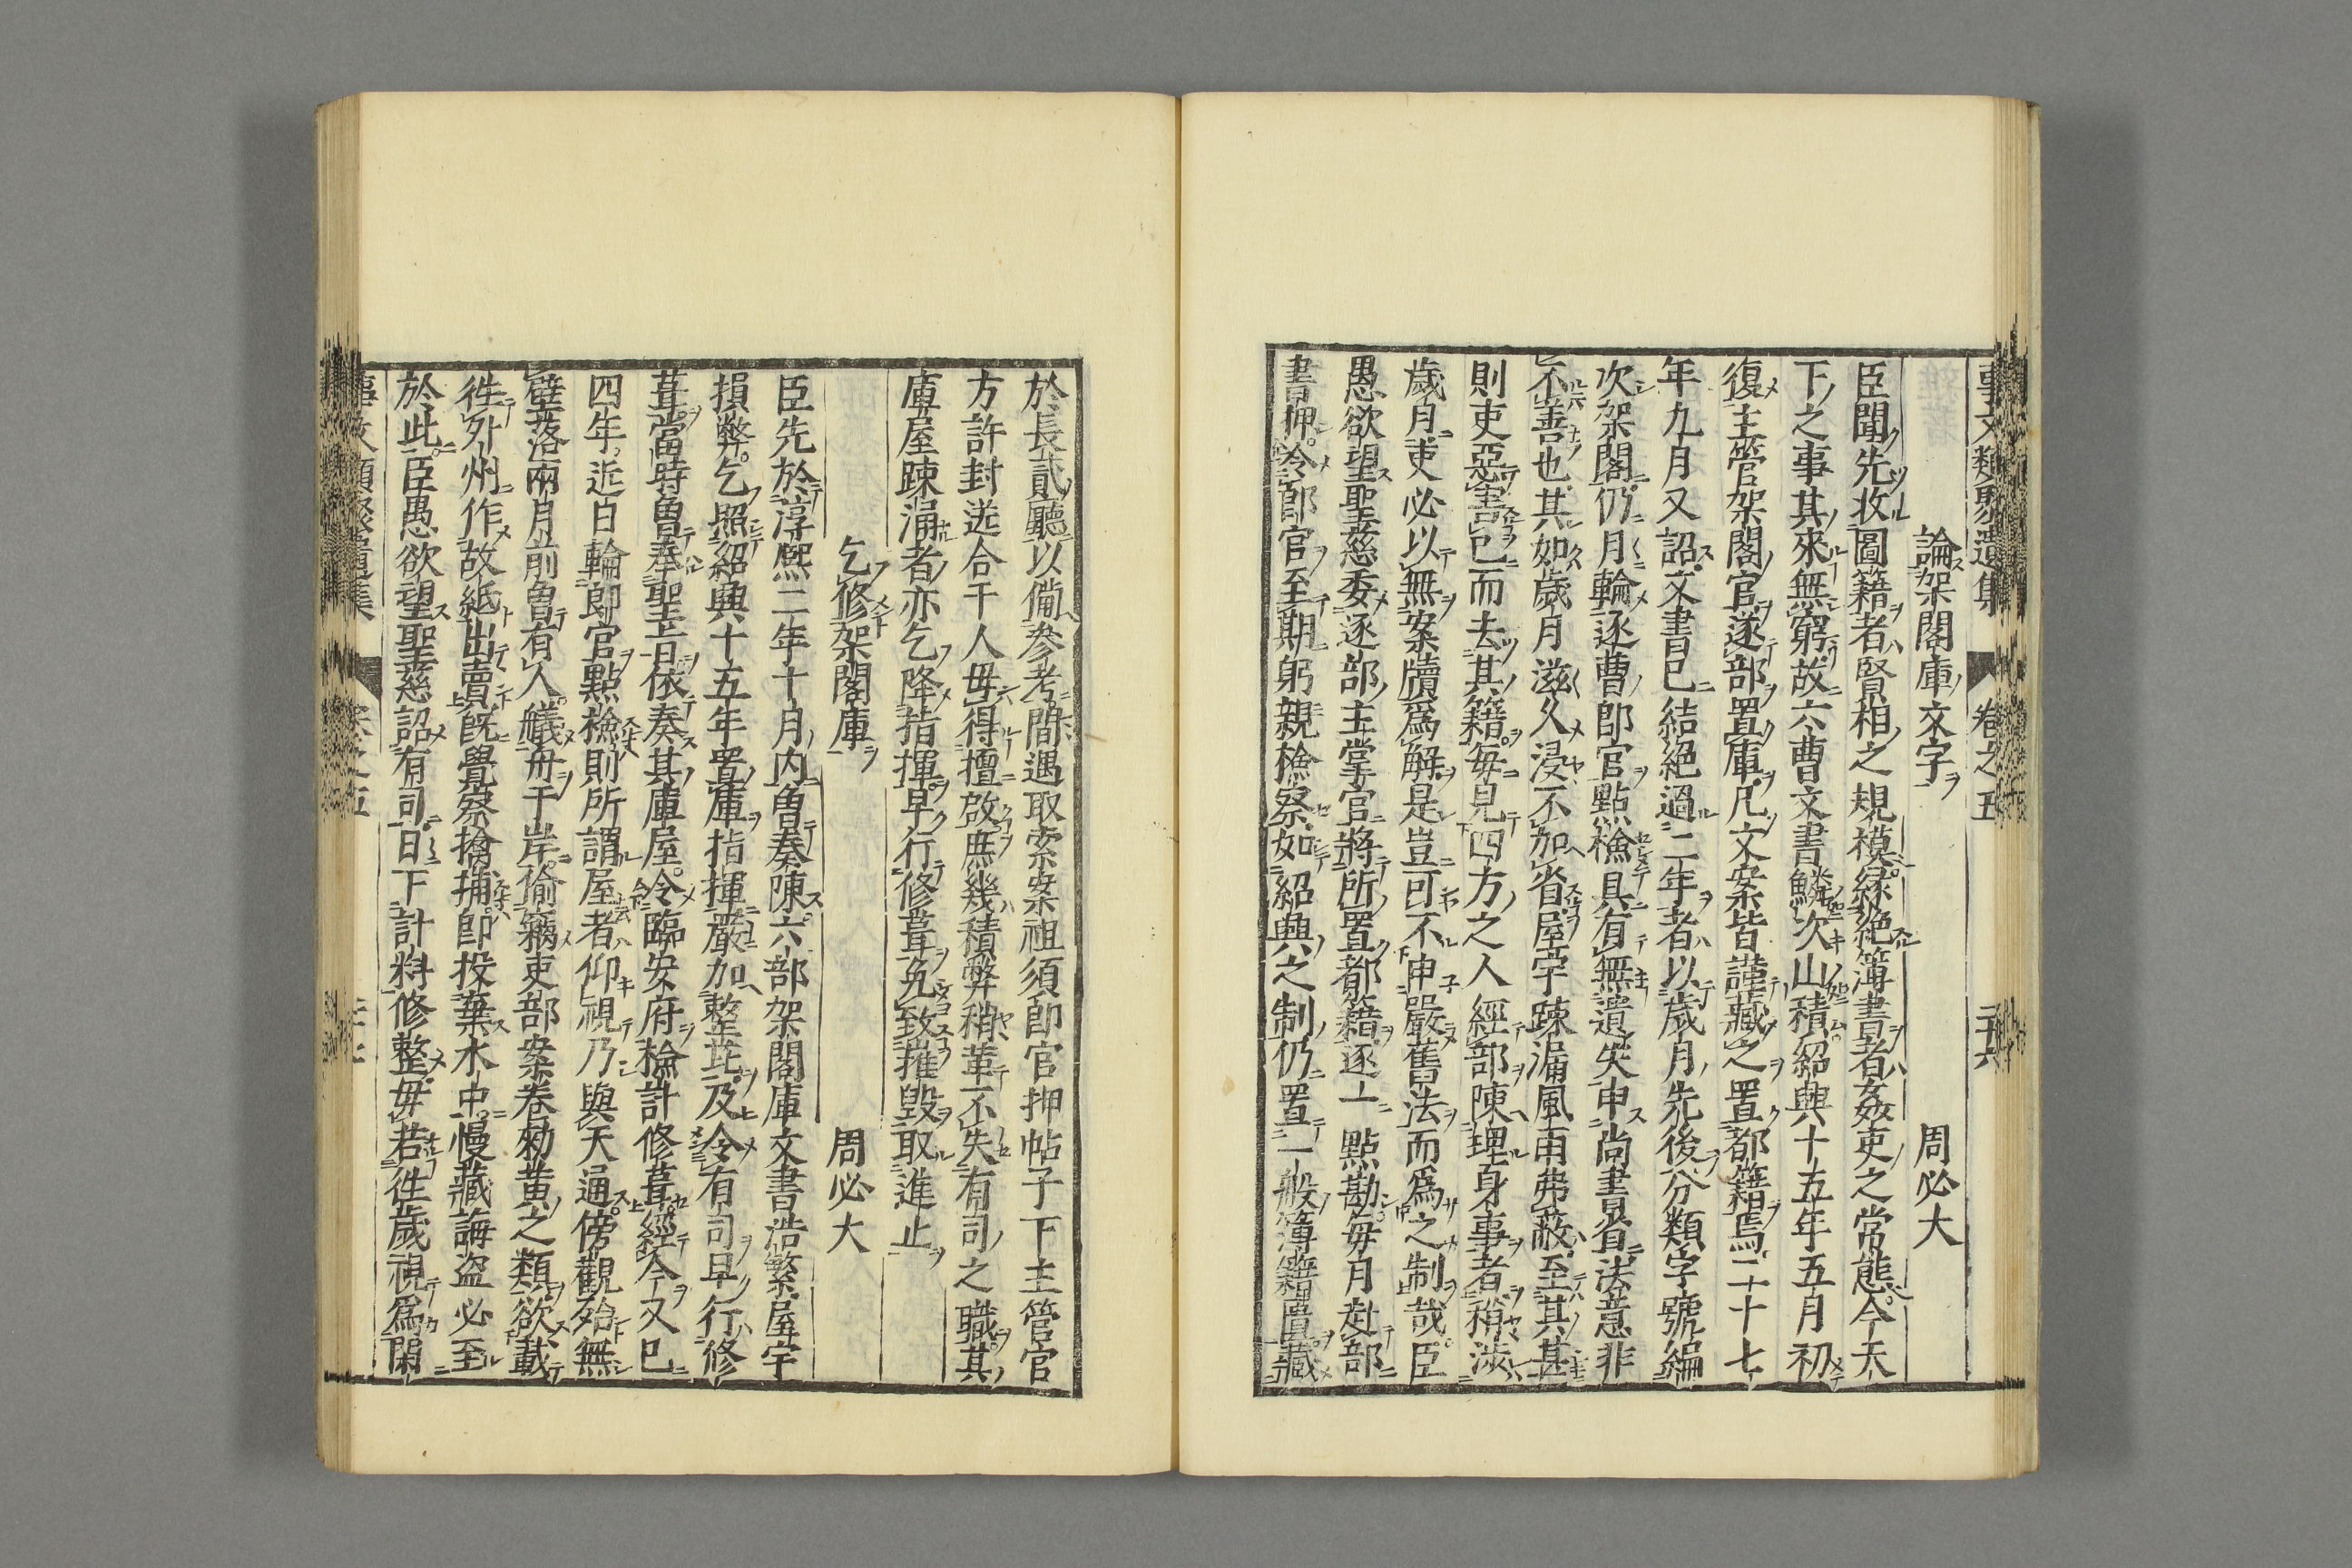 事文類聚遺集 卷之五 二十六
論架閣庫文字 周必大
臣聞先收圖籍者賢相之規模緑絶簿書者姦吏之常態今天
下之事其來無窮故六曹文書鱗次山積紹興十五年五月初
復主管架閣官遂部置庫凡文案皆謹藏之置都籍焉二十七
年九月又詔文書已結絶過二年者以歲月先後分類字號編
次架閣仍月輪逐曹郎官點檢具有無遺失申尚書省法意非
不善也其如歲月滋久浸不加省屋宇踈漏風雨弗蔽至其甚
則吏惡害已而去其籍毎見四方之人經部陳理身事者稍渉
歲月吏必以無案牘爲解是豈可不申嚴舊法而爲之制哉臣
愚欲望聖慈委逐部主掌官將所置都籍逐一點勘毎月赴部
書押泠郎官至期躬親檢察如紹興之制仍置一般簿籍匱藏
於長貳聽以備參考間遇取索案祖須郎官押帖子下主管官
方許封送合干人毋得擅啟庶幾積弊稍革不失有司之職其
庫屋踈漏者亦乞降指揮早行修葺免致摧毀取進止
乞修架閣庫 周必大
臣先於淳熙二年十月内曾奏陳六部架閣庫文書浩繁屋宇
損弊乞照紹興十五年置庫指揮嚴加整茈及令有司早行修
葺當時曽奉聖旨依奏其庫屋令臨安府檢計修葺經今又已
四年近白輪郎官點檢則所謂屋者仰視乃與天通傍觀殆無
壁落兩月前曽有人艤舟于岸偷竊吏部案卷勑黄之類欲載
徃外州作故紙出賣既覺察擒捕即投棄水中慢藏誨盗必至
於此臣愚欲望聖慈詔有司日下計料修整毋若徃歲視爲閑